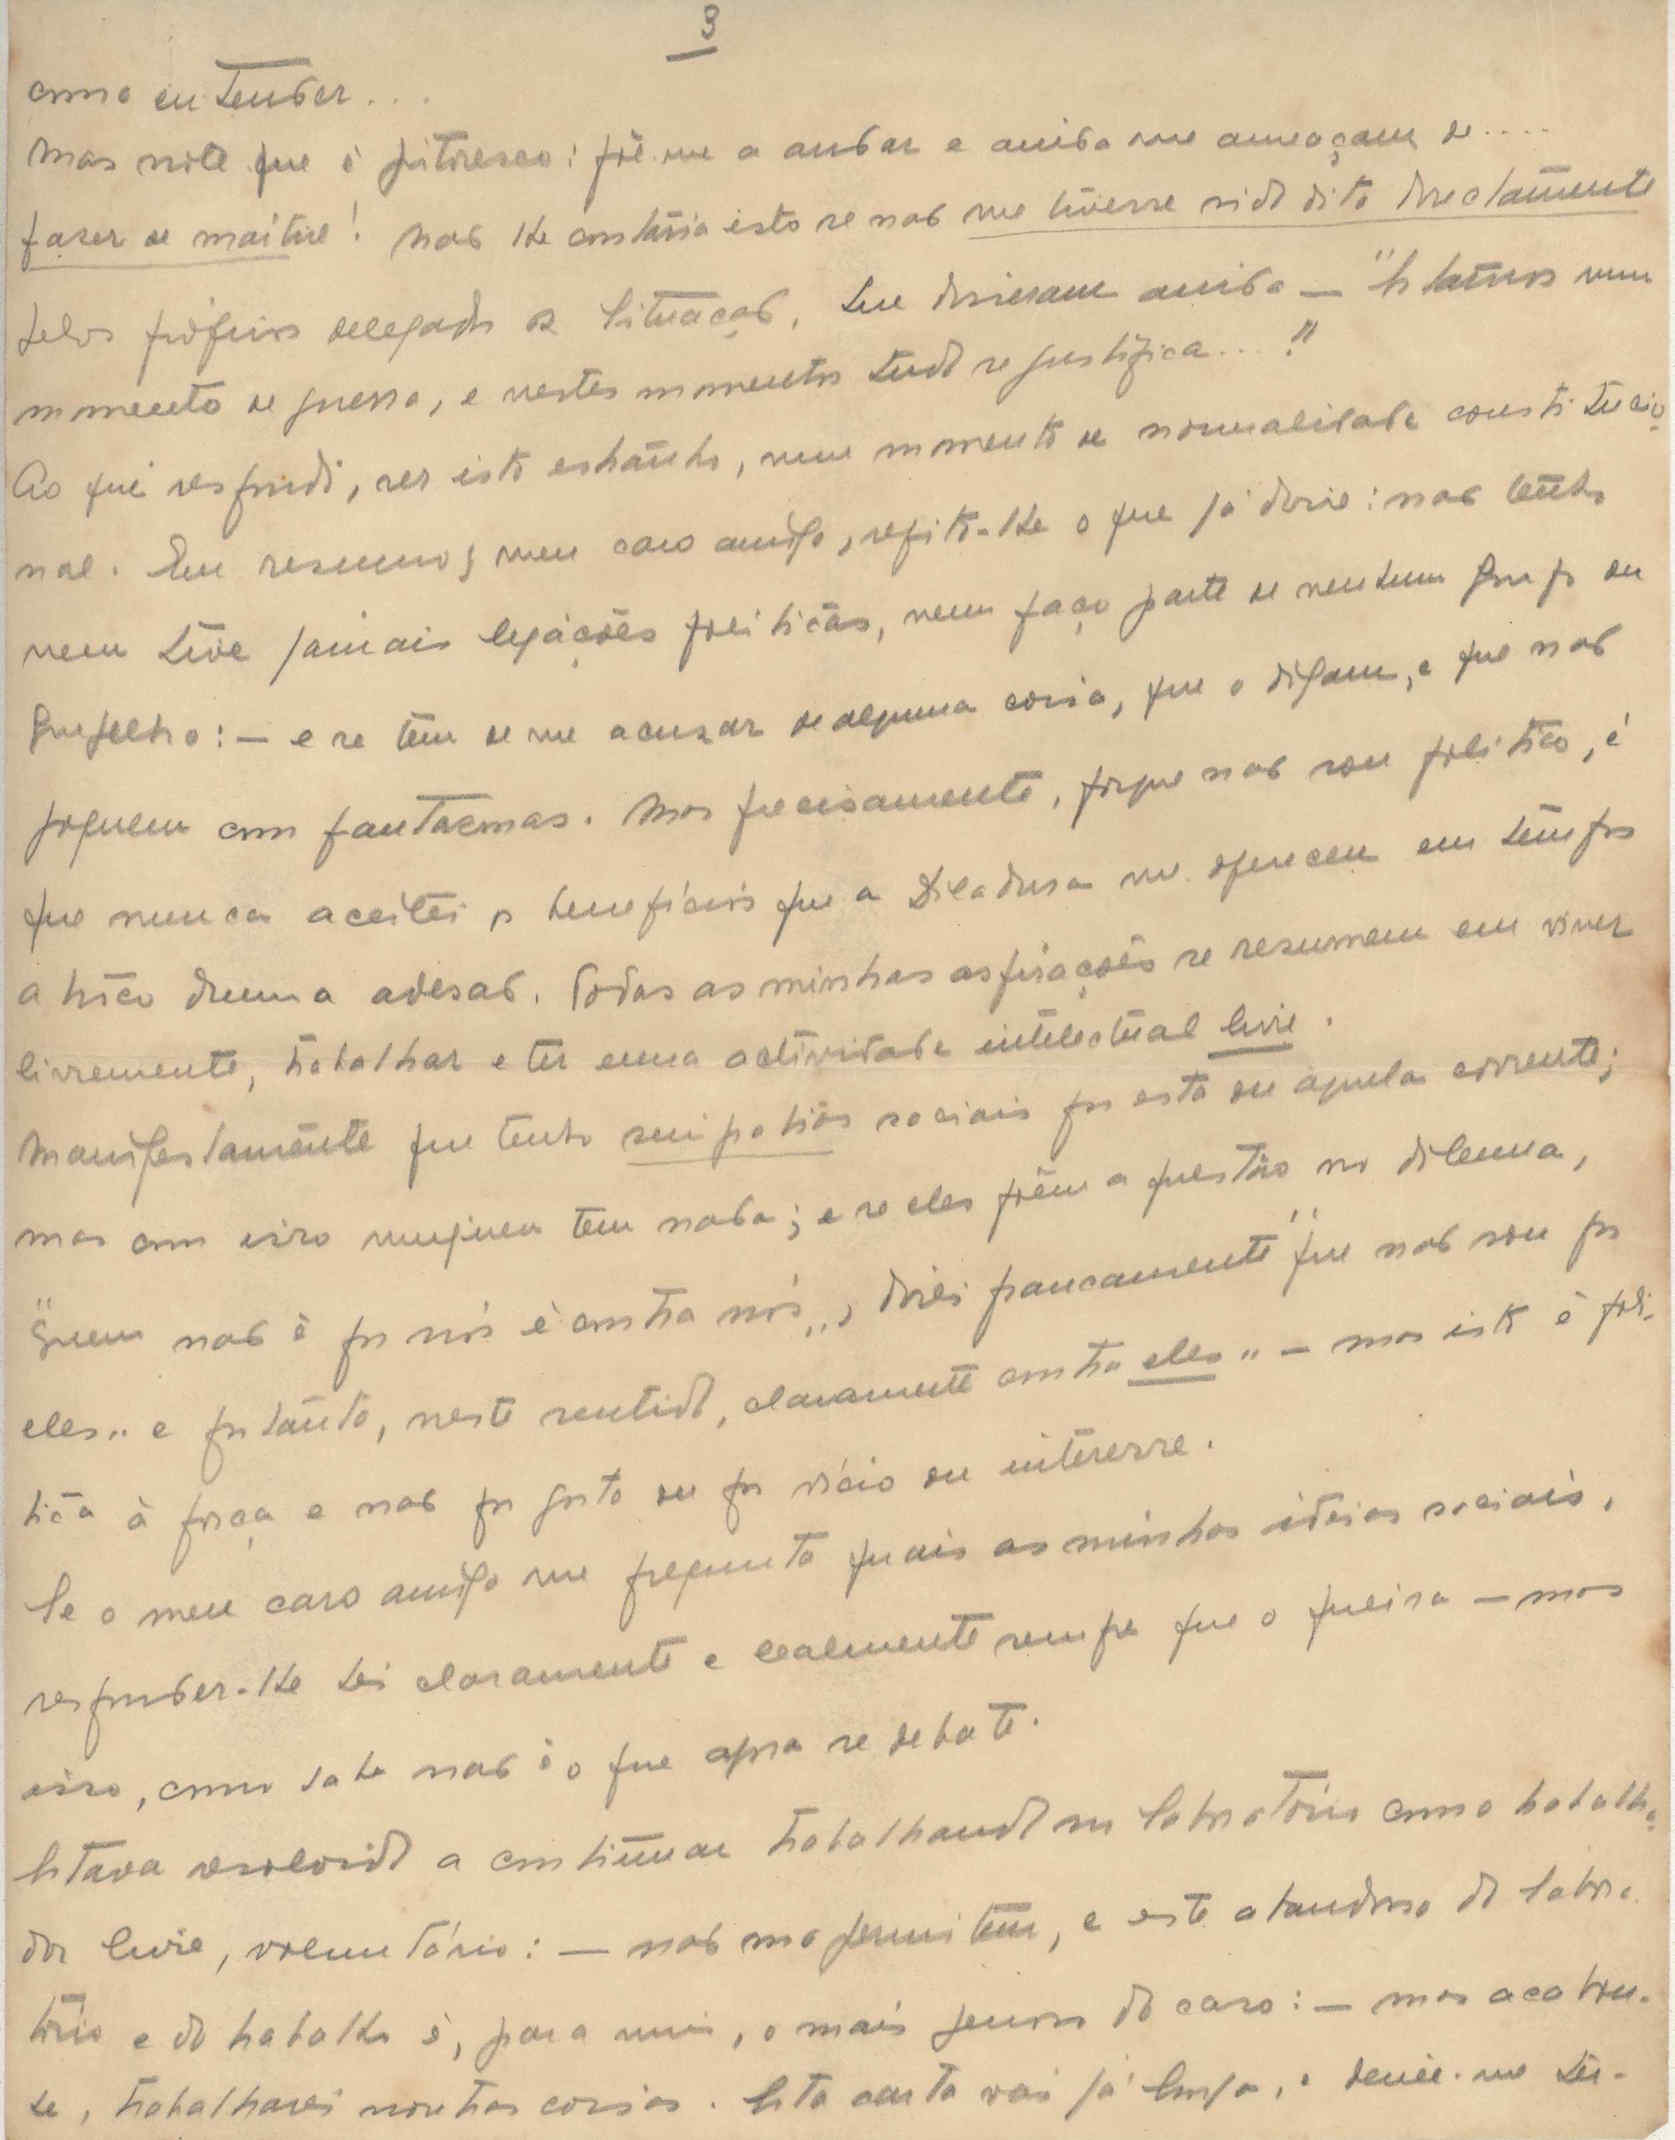 3
como entender...
Mas note que é pitoresco: põe-me a andar e ainda me ameaçam de....
fazer de maitre! Não lhe contaria isto se não me tivesse sido dito directamente
pelos próprios delegados da Situação, que disseram ainda — "Estamos num
momento de guerra, e nestes momentos tudo se justifica...!"
Ao que respondi, ser isto estranho, num momento de normalidade constitucio
nal. Em resumo, meu caro amigo, repito-lhe o que já disse: não tenho
nem tive jamais ligações politicas, nem faço parte de nenhum grupo ou
grupelho: — e se têm de me acusar de alguma coisa, que o digam, e que não
joguem com fantasmas. Mas precisamente, porque não sou politico, é
que nunca aceitei os beneficios que a Ditadura me ofereceu em tempos
a trôco duma adesão. Todas as minhas aspirações se resumem em viver
livremente, trabalhar e ter uma actividade intelectual livre.
Manifestamente que tenho simpatias sociais por esta ou aquela corrente;
mas com isso ninguem tem nada; e se eles põem a questão no dilema,
"Quem não é por nós é contra nós", direi francamente "que não sou por
eles" e portanto, neste sentido, claramente contra eles" — mas isto é poli-
tica à força e não por gosto ou por vício ou interesse.
Se o meu caro amigo me pregunta quais as minhas ideias sociais,
responder-lhe hei claramente e lealmente sempre que o queira — mas
isso, como sabe não é o que agora se debate.
Estava resolvido a continuar trabalhando no Laboratório como trabalha
dor livre, voluntário: — não mo permitem, e este abandono do labora
tório e do trabalho é, para mim, o mais penoso do caso: — mas acabou-
se, trabalharei noutras coisas. Esta carta vai já longa, e deixe-me ter-